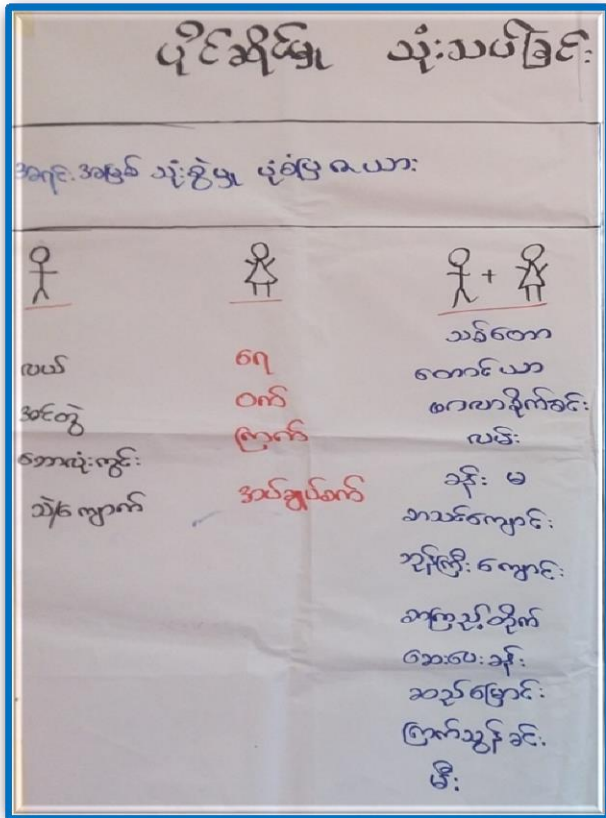 ပိုင်ဆိုင်မှု သုံးသပ်ခြင်း
အရင်းအမြစ် သုံးစွဲမှု ပုံစံပြ ဇယား
+
လယ်
အင်တွဲ
ဘောလုံးကွင်း
သဲ/ကျောက်
ရေ
ဝက်
ကြက်
အပ်ချုပ်စက်
သစ်တော
တောင်ယာ
ဖာလာစိုက်ခင်း
လမ်း
ခန်း မ
စာသင်ကျောင်း
ဘုန်းကြီးကျောင်း
စာကြည့်တိုက်
ဆေးပေးခန်း
ဆည်မြောင်း
ကြက်သွန်ခင်း
မီး